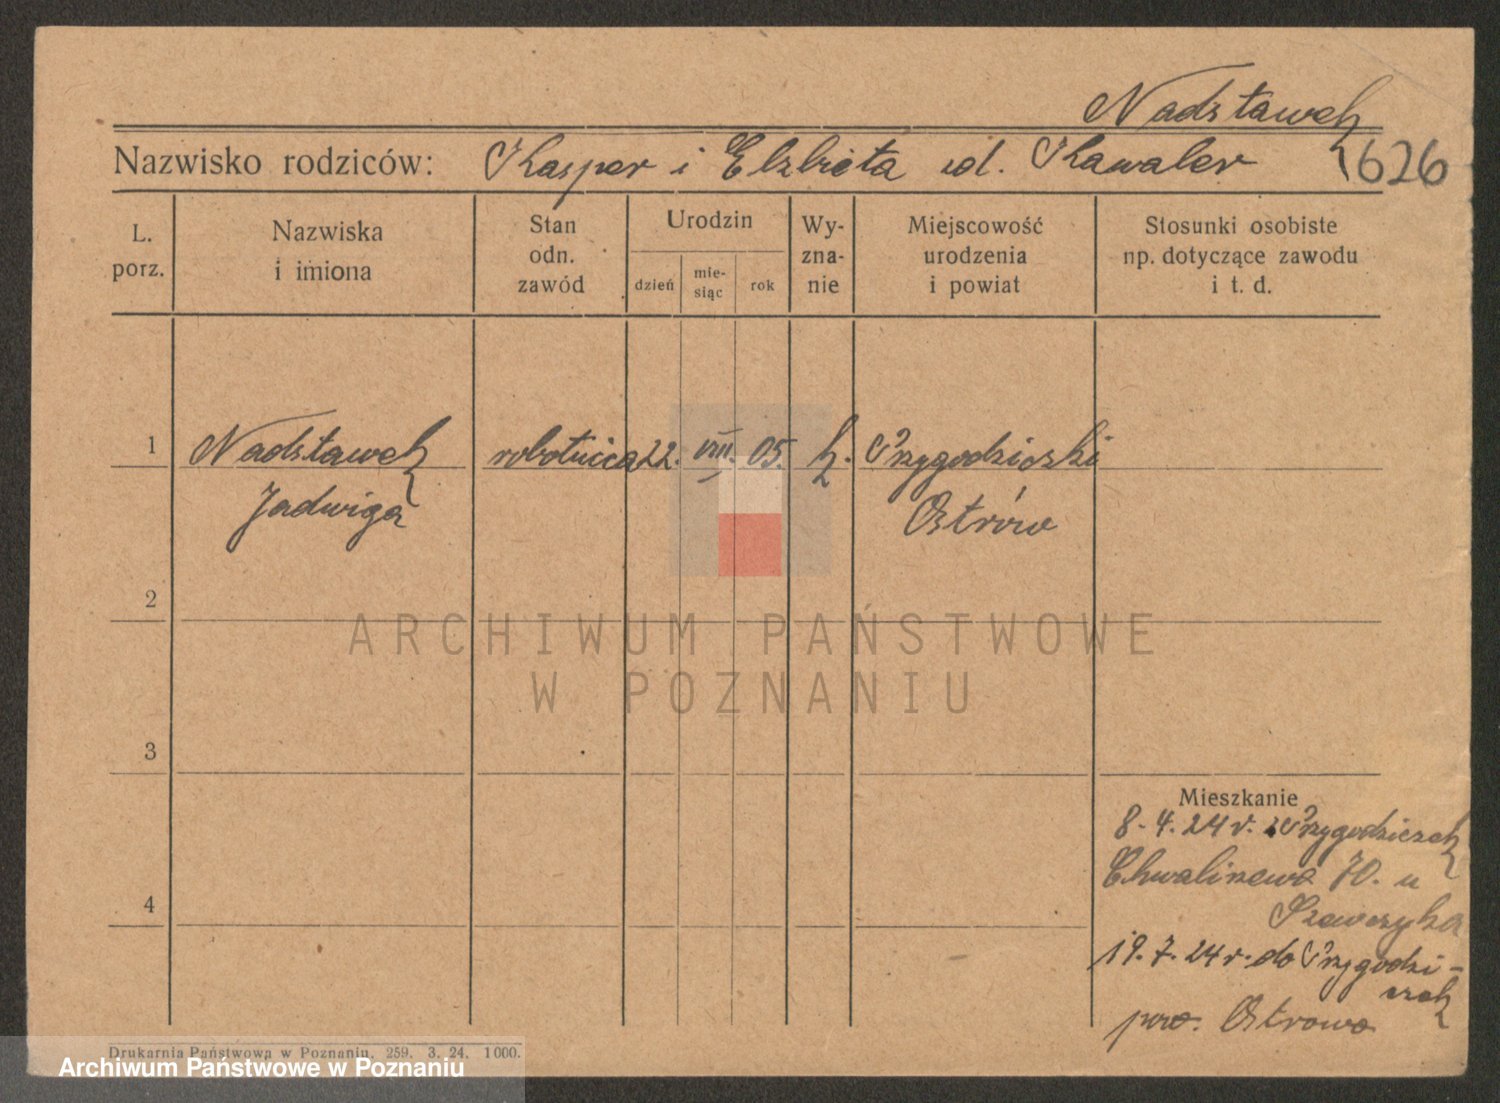 Nadstawek
Nazwisko rodziców: Kasper i Elzbieta ul. Kawaler 1626
L. porz.
Nazwiska i imiona
Stan odn. zawód
Urodzin
dzień
mie-siąc
rok
Wy-zna-nie
Miejscowość urodzenia i powiat
Stosunki osobiste np. dotyczące zawodu i t. d.
1 Nadstawek robotnica 22. VIII. 05. k. Przygodziczki
Jadwiga Ostrów
2
ARCHIWUM PAŃSTWOWE
W POZNANIU
3
Mieszkanie
8.4.24 r. z Przygodziczek
4 Chwaliszewo 70. u
Szewczyka
19.7.24 r. do Przygodzi-
czek
pow. Ostrowo
Drukarnia Państwowa w Poznaniu. 259. 3. 24. 1000.
Archiwum Państwowe w Poznaniu